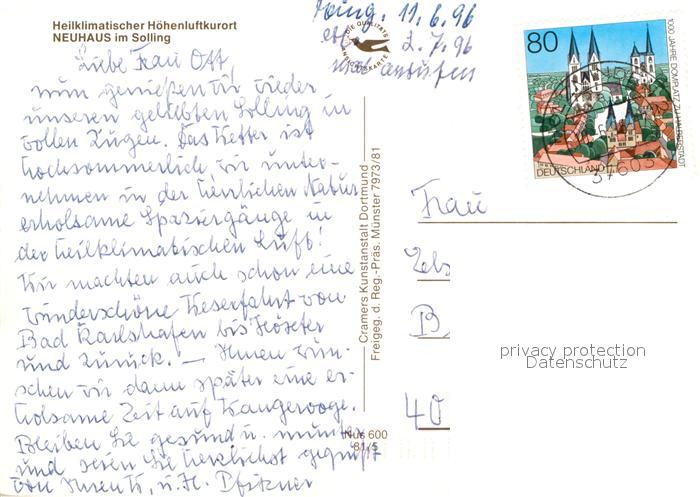 Heilklimatischer Höhenluftkurort
NEUHAUS im Solling
Eing. 11.6.96
2.7.96
anrufen
DIE QUALITÄTS
ANSICHTSKARTE
80
1000 JAHRE DOMPLATZ ZU HALBERSTADT
DEUTSCHLAND
37603
Liebe Frau Ott,
nun genießen wir wieder
unseren geliebten Solling in
vollen Zügen. Das Wetter ist
hochsommerlich, wir unter-
nehmen in der herrlichen Natur
erholsame Spaziergänge in
der heilklimatischen Luft!
Wir machten auch schon eine
wunderschöne Weserfahrt von
Bad Karlshafen bis Höxter
und zurück. — Ihnen wün-
schen wir dann später eine er-
holsame Zeit auf Wangerooge.
Bleiben Sie gesund u. munter
und seien Sie herzlichst gegrüßt
von Ihren u. H. Pfitzner
Cramers Kunstanstalt Dortmund
Freigeg. d. Reg.-Präs. Münster 7973/81
Nus 600
81/5
Frau
B
40
privacy protection
Datenschutz